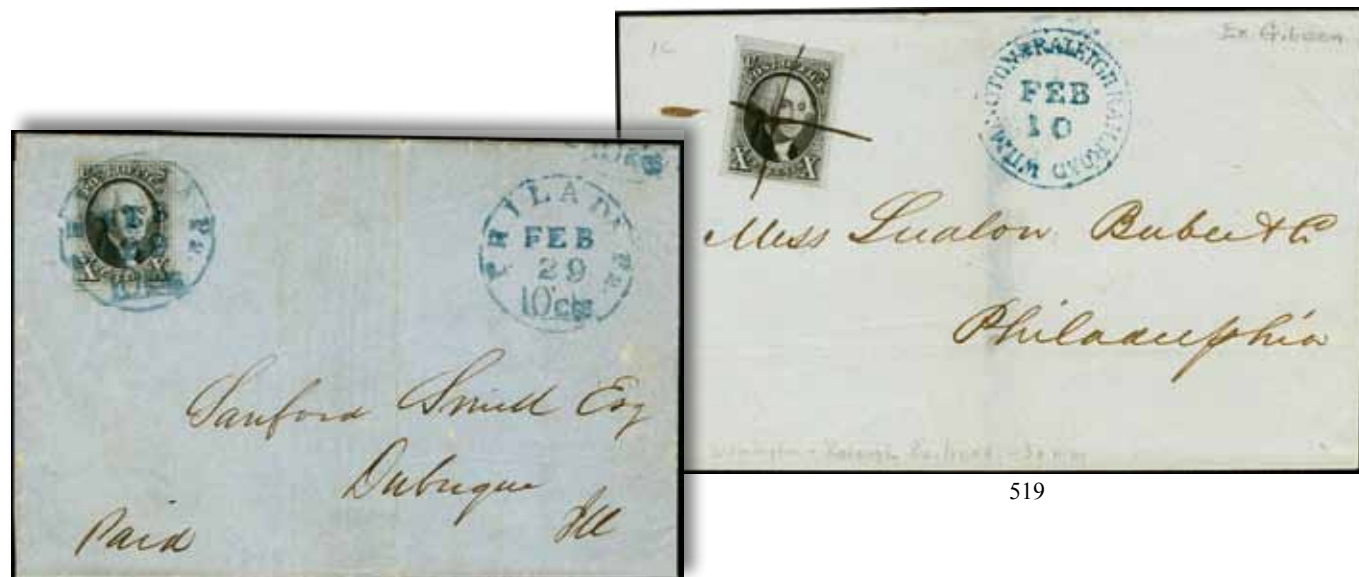 PHILADA Pa
FEB
29
10cts
X X
Sanford Smith Esq
Dubuque
Ill
Paid
1c
Ex Gibson
POST OFFICE
X X
WILMINGTON & RALEIGH RAILROAD
FEB
10
Mess Ludlow Beebee & Co
Philadelphia
Wilmington & Raleigh Railroad - 30 mm
519